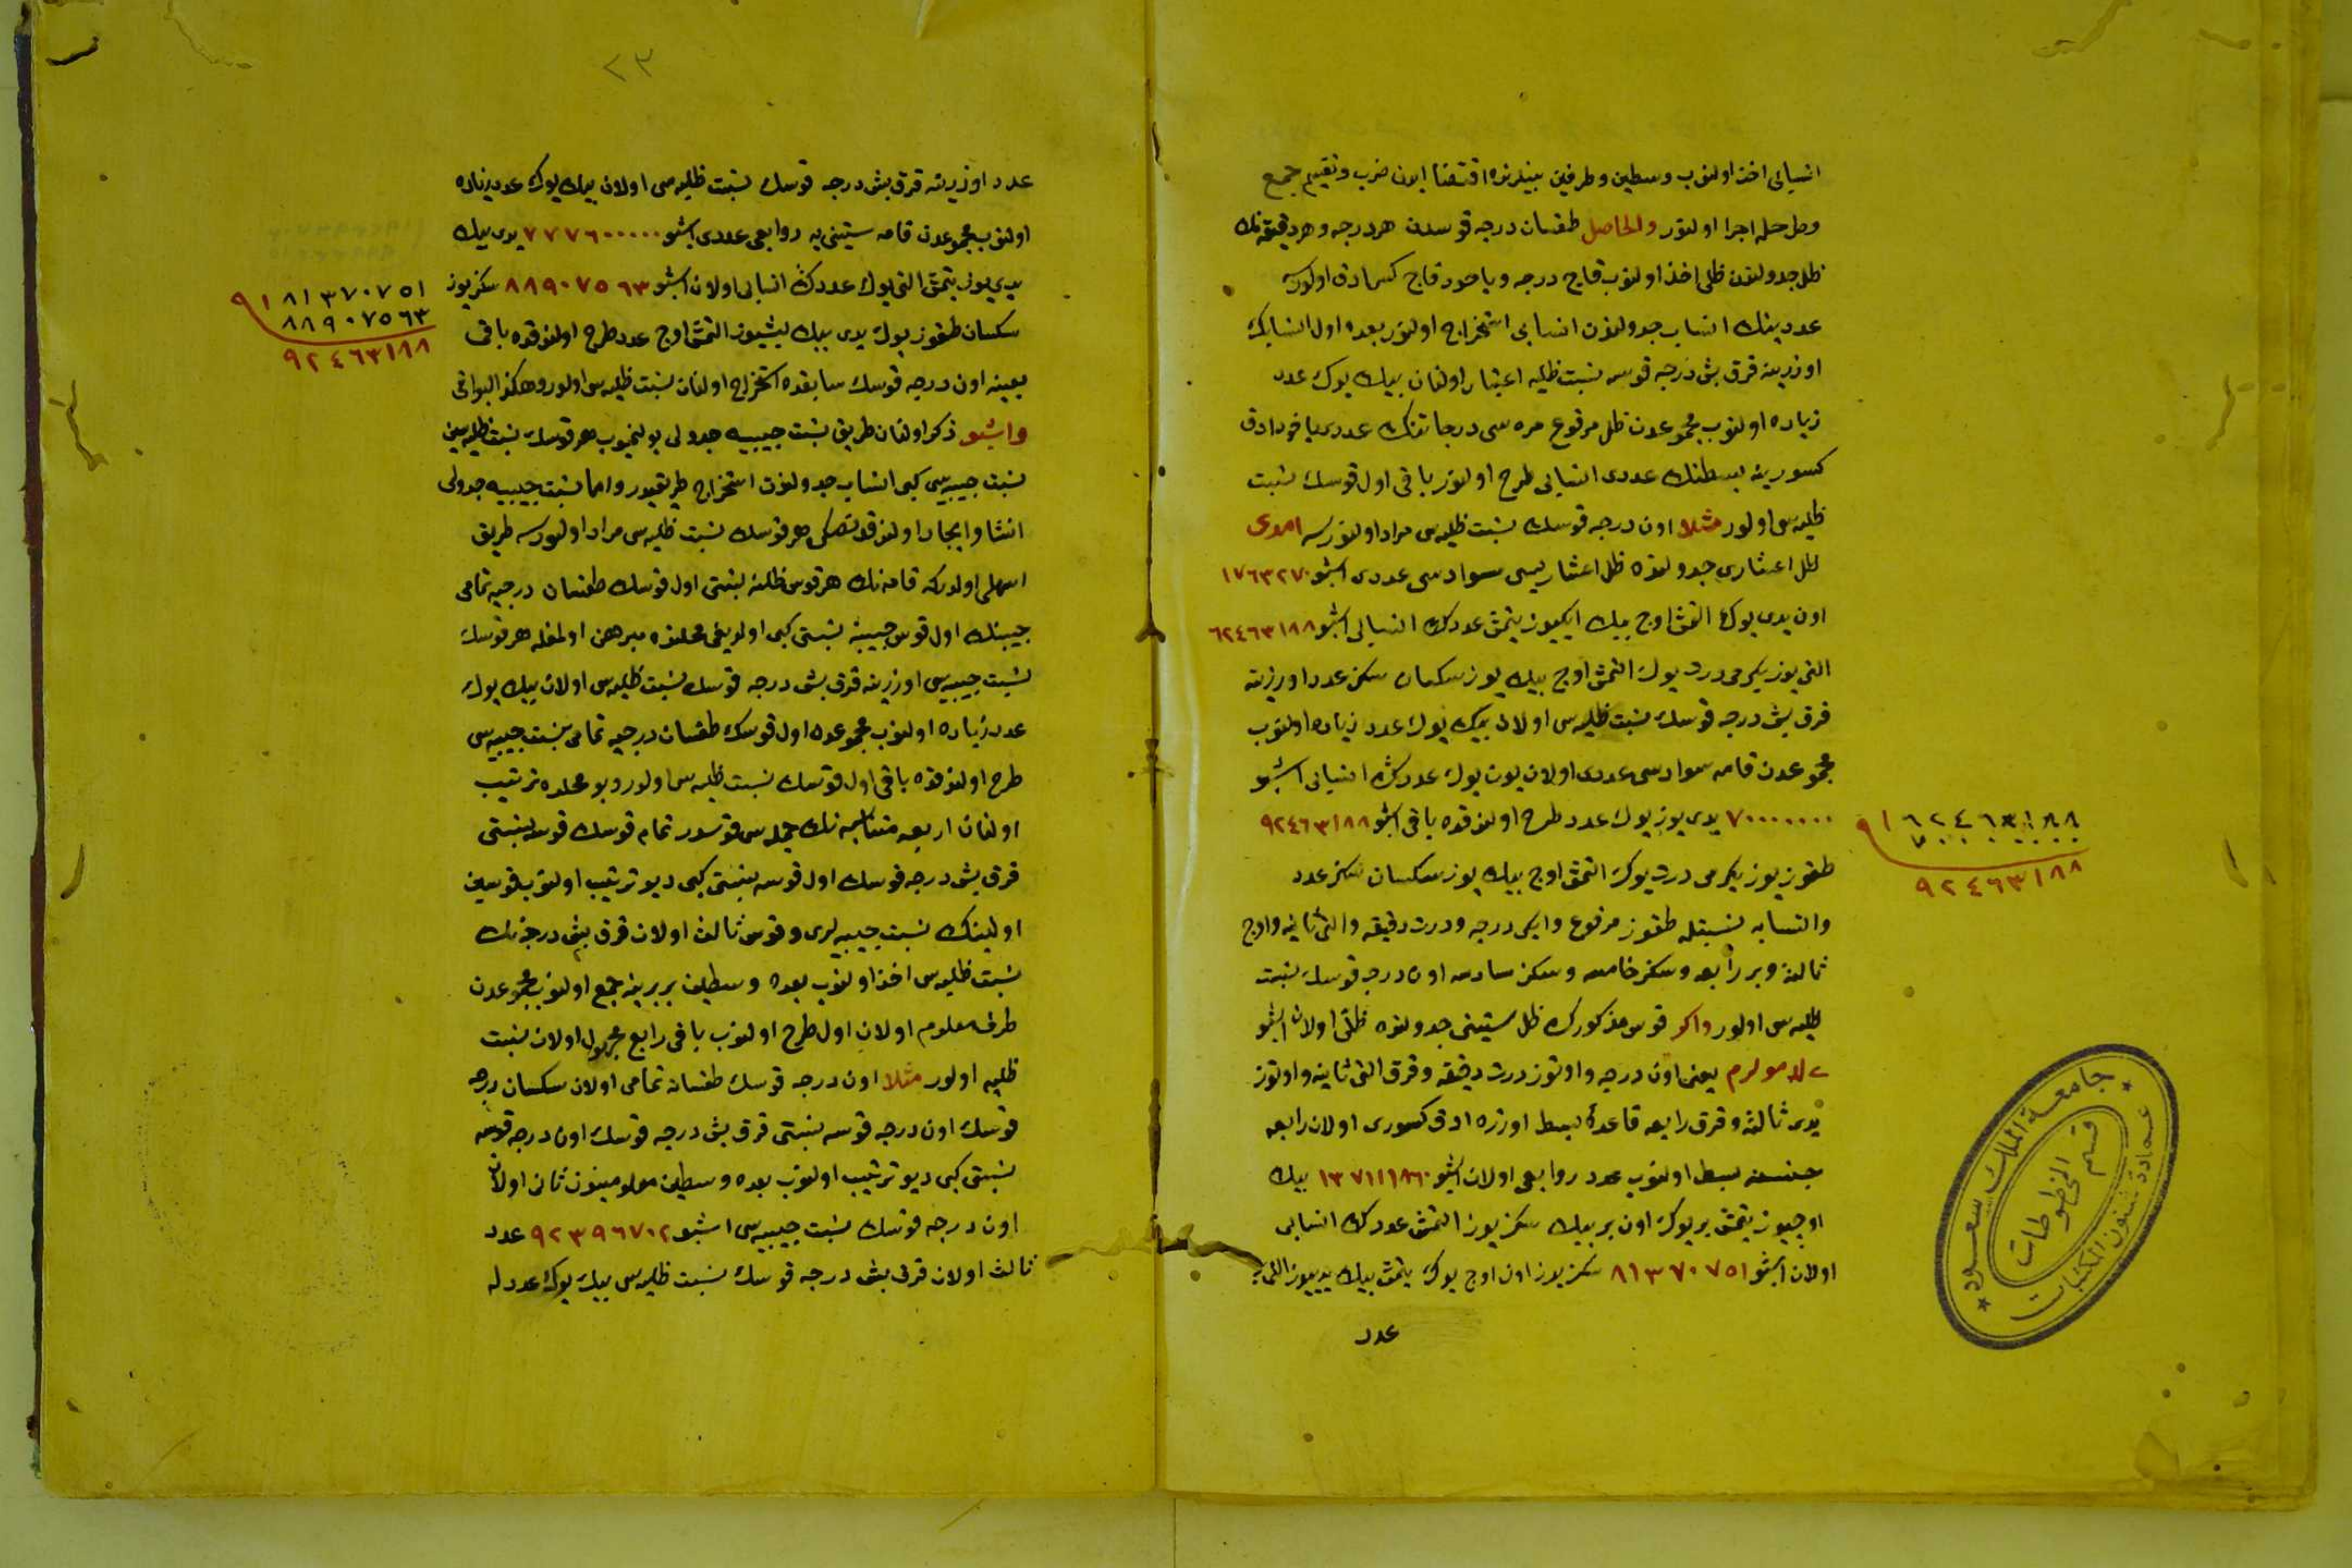 انسابی اخذ اولنوب وسطین وطرفین بینلرنده اقتضا ایدن ضرب وتقسیم جمع
وطرحله اجرا اولنور والحاصل طقسان درجه قوسدن هر درجه وهر دقیقه نك
ظل جدولندن ظلی اخذ اولنوب قاچ درجه ویاخود قاچ اولورسه
عددینك انساب جدولندن انسابی استخراج اولنور بعده اول انسابك
اوزرینه قرق بش درجه قوسه نسبت ظلیه اعتبار اولنان بیك یوك عدد
زیاده اولنوب مجموعدن ظل مرفوع مره سی درجاتنك عددی یاخود ادق
كسورینه بسطنك عددی انسابی طرح اولنور باقی اول قوسك نسبت
ظلیه سی اولور مثلا اون درجه قوسك نسبت ظلیه سی مراد اولنورسه امدی
ظل اعشاری جدولنده ظل اعشاریسی سوادسی عددی اشبو ١٧٦٣٢٧٠
اون یدی یوك التمش اوچ بیك ایكیوز یتمش عددك انسابی اشبو ٦٢٤٦٣١٨٨
التی یوز یكرمی درت یوك التمش اوچ بیك یوز سكسان سكز عدد اوزرینه
قرق بش درجه قوسك نسبت ظلیه سی اولان بیك یوك عدد زیاده اولنوب
مجموعدن قامه سوادسی عددی اولان یوك عددك انسابی اشبو
٧٠٠٠٠٠٠٠ یدی یوز یوك عدد طرح اولندقده باقی اشبو ٩٢٤٦٣١٨٨
طقوز یوز یكرمی درت یوك التمش اوچ بیك یوز سكسان سكز عدد
نسبتله طقوز مرفوع وایكی درجه ودرت دقیقه والتی ثانیه واوچ
ثالثه وبر رابعه وسكز خامسه وسكز سادسه اون درجه قوسك نسبت
ظلیه سی اولور واكر قوس مذكورك ظل ستینی جدولنده ظلی اولان اشبو
ی لد مو لز م یعنی اون درجه واوتوز درت دقیقه وقرق التی ثانیه واوتوز
یدی ثالثه وقرق رابعه قاعدهٔ بسط اوزره ادق كسوری اولان رابعه
جنسنه بسط اولنوب عدد روابعی اولان اشبو ١٣٧١١٨٦٠ بیك
اوچیوز یتمش بر یوك اون بر بیك سكز یوز التمش عددك انسابی
اولان اشبو ٨١٣٧٠٧٥١ سكز یوز اون اوچ یوك یتمش بیك یدییوز اللی بر
عدد
١٦٢٤٦٣١٨٨
٧٠٠٠٠٠٠٠
٩٢٤٦٣١٨٨
جامعة الملك سعود
قسم المخطوطات
عمادة شئون المكتبات
٢٣
عدد اوزرینه قرق بش درجه قوسك نسبت ظلیه سی اولان بیك یوك عدد زیاده
اولنوب مجموعدن قامه ستینی یه روابعی عددی اشبو ٧٧٧٦٠٠٠٠٠ یدی بیك
یدی یوز یتمش التی یوك عددك انسابی اولان اشبو ٨٨٩٠٧٥٦٣ سكز یوز
سكسان طقوز یوك یدی بیك بشیوز التمش اوچ عدد طرح اولندقده باقی
بعینه اون درجه قوسك سابقده استخراج اولنان نسبت ظلیه سی اولور وهكذا البواقی
واشبو ذكر اولنان طریق نسبت جیبیه جدولی بولنمیوب هر قوسك نسبت ظلیه سین
نسبت جیبیه سی كبی انساب جدولندن استخراج طریقیدر واما نسبت جیبیه جدولی
انشا وایجاد اولندقدنصكره هر قوسك نسبت ظلیه سی مراد اولنورسه طریق
اسهلی اولدركه قامه نك هر قوس ظلنه نسبتی اول قوسك طقسان درجه یه تمامی
جیبنك اول قوس جیبینه نسبتی كبی اولدیغی محلنده مبرهن اولمغله هر قوسك
نسبت جیبیه سی اوزرینه قرق بش درجه قوسك نسبت ظلیه سی اولان بیك یوك
عدد زیاده اولنوب مجموعدن اول قوسك طقسان درجه یه تمامی نسبت جیبیه سی
طرح اولندقده باقی اول قوسك نسبت ظلیه سی اولور وبو محلده ترتیب
اولنان اربعه متناسبه نك جمله سی قوسدر تمام قوسك قوسه نسبتی
قرق بش درجه قوسك اول قوسه نسبتی كبی دیو ترتیب اولنوب قوسین
اولینك نسبت جیبیه لری وقوس ثالث اولان قرق بش درجه نك
نسبت ظلیه سی اخذ اولنوب بعده وسطین بربرینه جمع اولنوب مجموعدن
طرف معلوم اولان اول طرح اولنوب باقی رابع مجهول اولان نسبت
ظلیه اولور مثلا اون درجه قوسك طقسانه تمامی اولان سكسان درجه
قوسك اون درجه قوسه نسبتی قرق بش درجه قوسك اون درجه قوسه
نسبتی كبی دیو ترتیب اولنوب بعده وسطین معلومیندن ثانی اولان
اون درجه قوسك نسبت جیبیه سی اشبو ٩٢٣٩٦٧٠٢ عدد
ثالث اولان قرق بش درجه قوسك نسبت ظلیه سی بیك یوك عدد له
١٨١٣٧٠٧٥١
٨٨٩٠٧٥٦٣
٩٢٤٦٣١٨٨